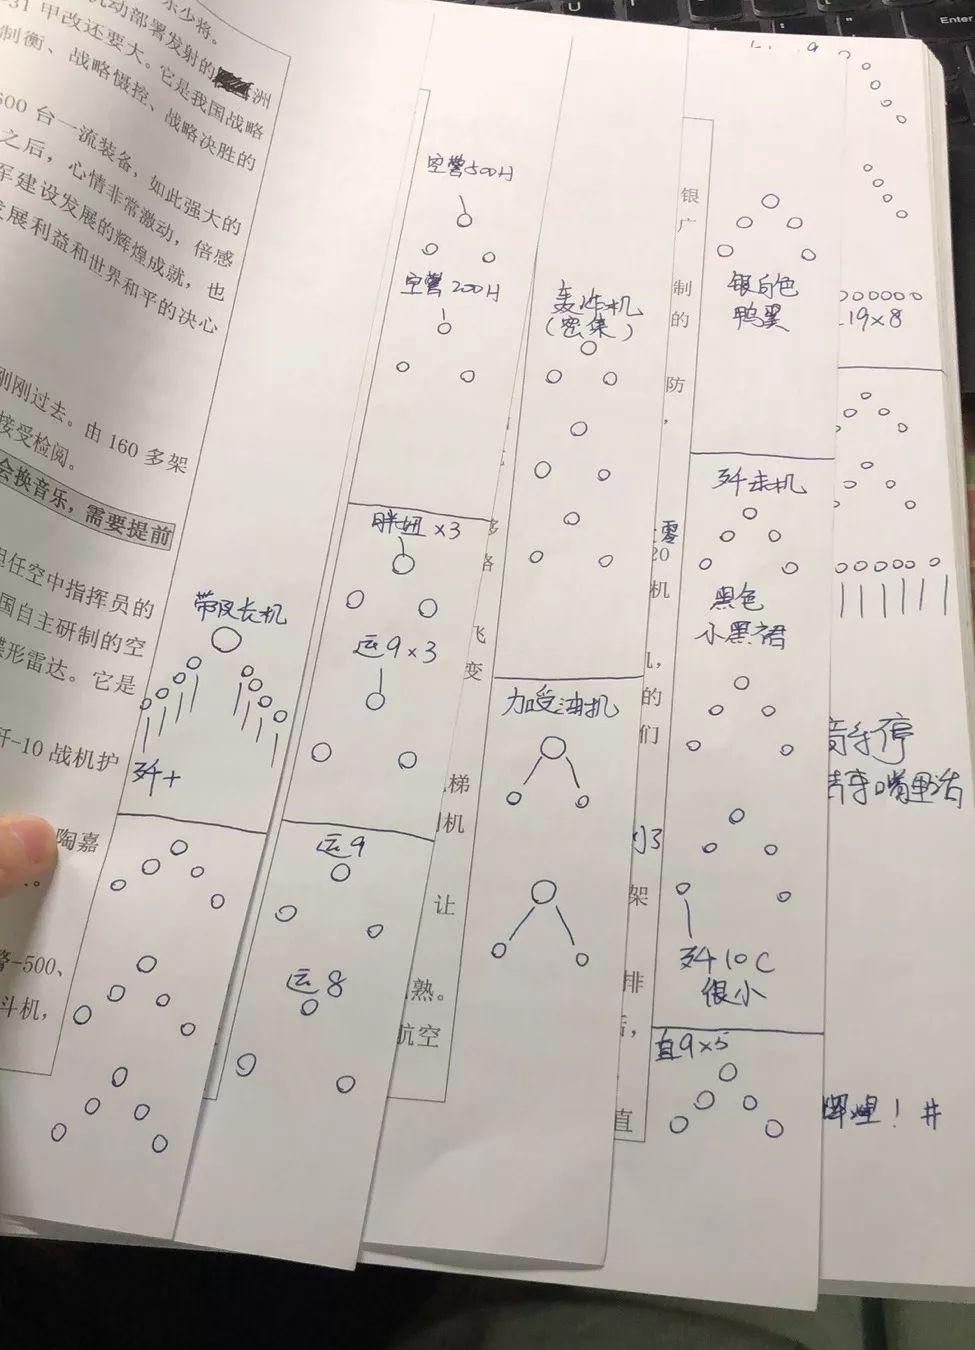 东少将。
机动部署发射的
洲
31甲改还要大。它是我国战略
制衡、战略慑控、战略决胜的
600 台一流装备，如此强大的
之后，心情非常激动，倍感
军建设发展的辉煌成就，也
发展利益和世界和平的决心
刚刚过去。由 160 多架
接受检阅。
会换音乐，需要提前
担任空中指挥员的
国自主研制的空
碟形雷达。它是
歼-10 战机护
陶嘉
警-500、
斗机，
带队长机
歼十
空警500H
空警200H
胖妞×3
运9×3
运9
运8
轰炸机
（密集）
加受油机
飞
变
梯
机
让
熟。
航空
银
广
制
的
防
，
零
20
机
机，
的
们
架
排
直
银白色
鸭翼
歼击机
黑色
小黑裙
歼10C
很小
直9×5
19×8
音乐停
清亨嘴里话
辉煌！#
Enter